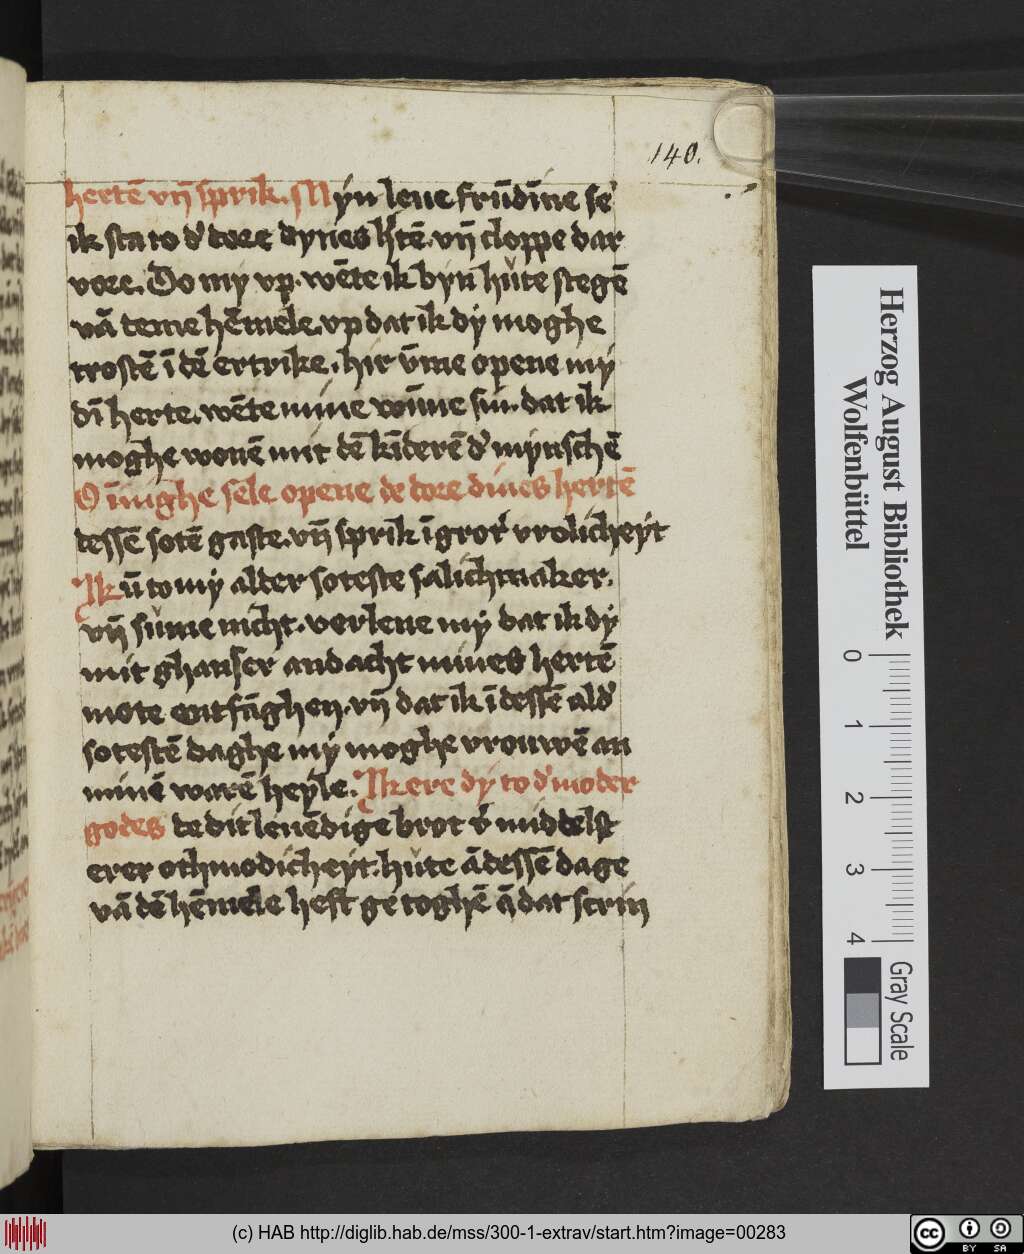 140.
hertē vn̄ sprik. Myn leue frūdīne se
ik sta to d' dore dynes h'tē. vn̄ cloppe dar
vore. Do my vp. wēte ik byn hüte stegē
vā deme hēmele. vp dat ik dy moghe
trostē ī dē ertrike. hir v̄me opene my
dī herte. wēte mine wūne sin. dat ik
moghe wonē mit dē kīderē d' mynschē
O īnighe sele opene de dore dines hertē
dessē sotē gaste. vn̄ sprik ī grot' vrolicheyt
Ik ū to my alder soteste salichmaker.
vn̄ süme nicht. verlene my dat ik dy
mit ghanser andacht mines hertē
mote entfāghen. vn̄ dat ik ī dessē ald'
sotestē daghe my moghe vrouwē an
minē warē heyle. Ik ere dy to d' moder
godes de dit leuēdige brot v' middelst
erer othmodicheyt. hüte ā dessē dage
vā dē hēmele heft ge toghē ā dat scrin
Herzog August Bibliothek
Wolfenbüttel
0 1 2 3 4
Gray Scale
(c) HAB http://diglib.hab.de/mss/300-1-extrav/start.htm?image=00283
cc BY SA